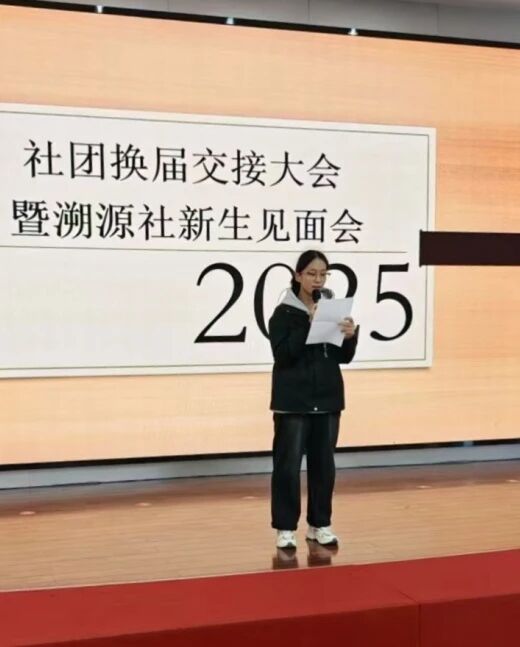 社团换届交接大会
暨溯源社新生见面会
2025